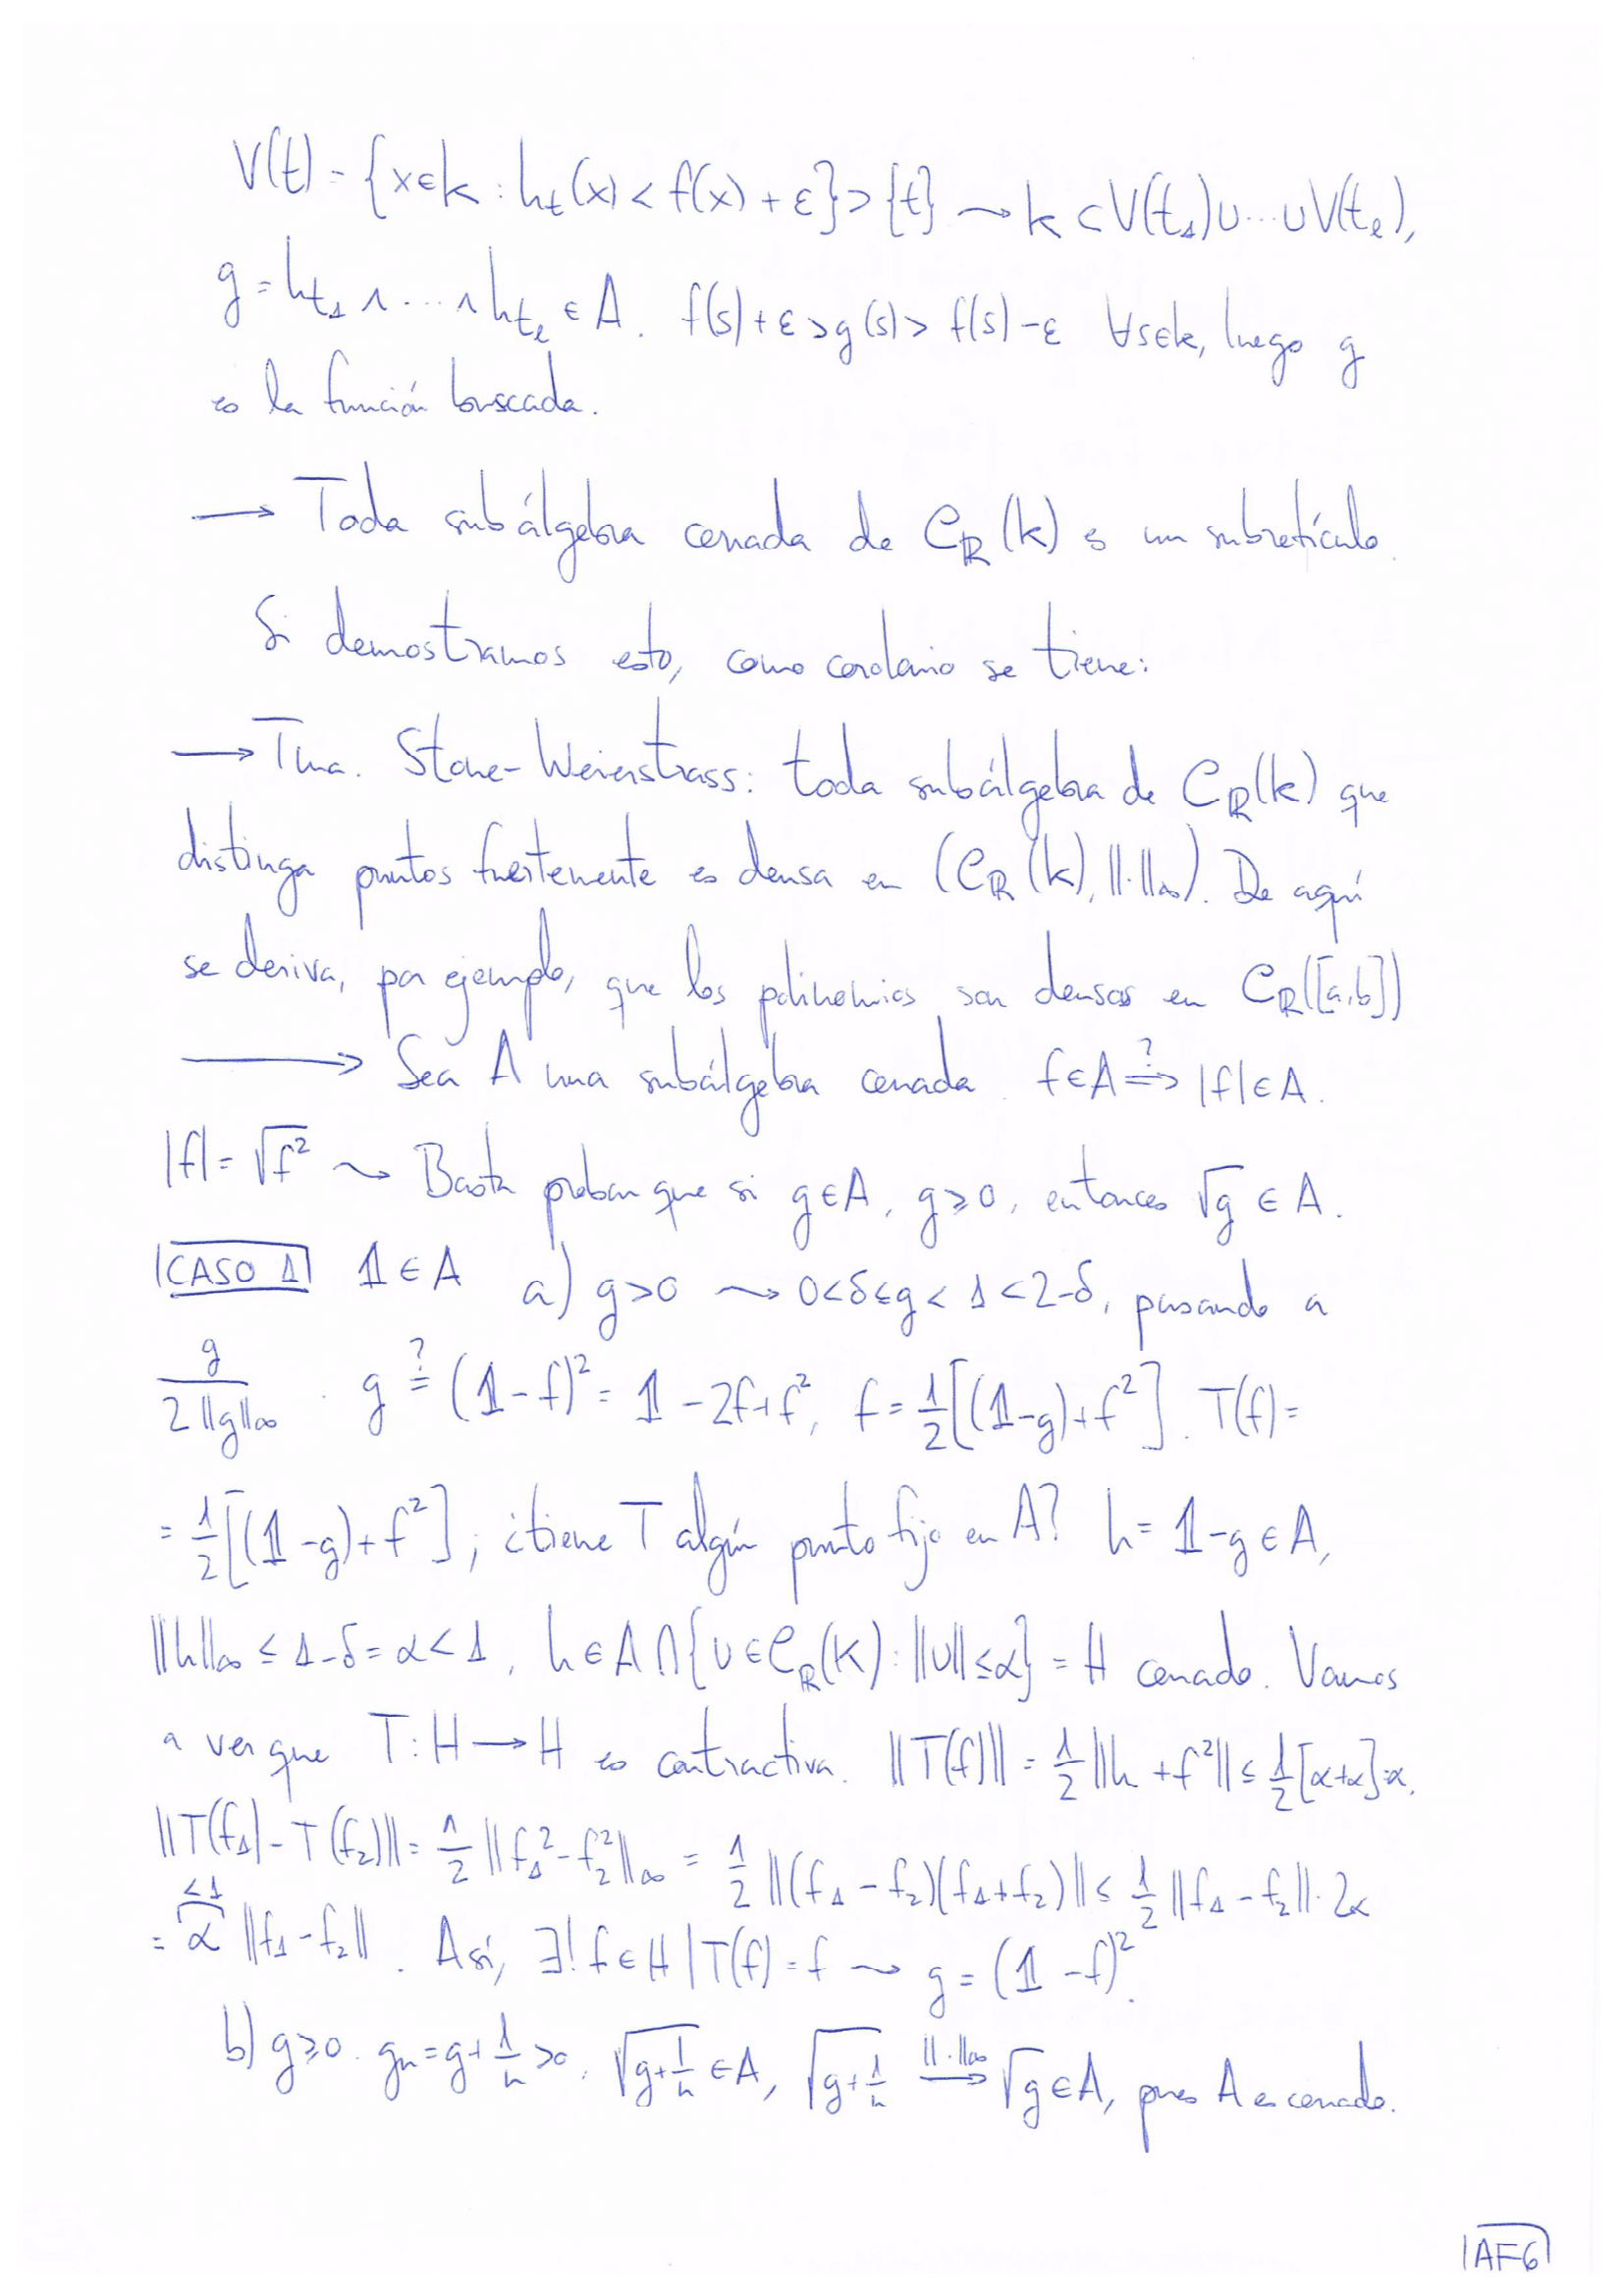 V(t) = {x∈k : h_t(x) < f(x) + ε} ⊃ {t} ⤳ k ⊂ V(t_1) ∪ ... ∪ V(t_l),
g = h_{t_1} ∧ ... ∧ h_{t_l} ∈ A. f(s)+ε > g(s) > f(s)-ε ∀s∈k, luego g
es la función buscada.
→ Toda subálgebra cerrada de C_ℝ(k) es un subretículo.
Si demostramos esto, como corolario se tiene:
→ Tma. Stone-Weierstrass: toda subálgebra de C_ℝ(k) que
distinga puntos fuertemente es densa en (C_ℝ(k), ||·||_∞). De aquí
se deriva, por ejemplo, que los polinomios son densos en C_ℝ([a,b])
⟶ Sea A una subálgebra cerrada. f∈A ⇒^? |f|∈A.
|f| = √f² ⤳ Basta probar que si g∈A, g≥0, entonces √g ∈ A.
CASO 1 𝟙∈A a) g>0 ⤳ 0<δ≤g<1<2-δ, pasando a
g/(2||g||_∞). g =^? (𝟙-f)² = 𝟙-2f+f², f = 1/2[(𝟙-g)+f²]. T(f)=
= 1/2[(𝟙-g)+f²]; ¿tiene T algún punto fijo en A? h = 𝟙-g∈A,
||h||_∞ ≤ 1-δ = α < 1, h∈A∩{v∈C_ℝ(K) : ||v||≤α} = H cerrado. Vamos
a ver que T: H→H es contractiva. ||T(f)|| = 1/2||h+f²|| ≤ 1/2[α+α]=α.
||T(f_1)-T(f_2)|| = 1/2||f_1²-f_2²||_∞ = 1/2||(f_1-f_2)(f_1+f_2)|| ≤ 1/2||f_1-f_2||·2α
= α^{<1} ||f_1-f_2||. Así, ∃! f∈H | T(f)=f ⤳ g = (𝟙-f)².
b) g≥0. g_n = g+1/n >0. √(g+1/n) ∈ A, √(g+1/n) →^{||·||_∞} √g ∈ A, pues A es cerrado.
AF6